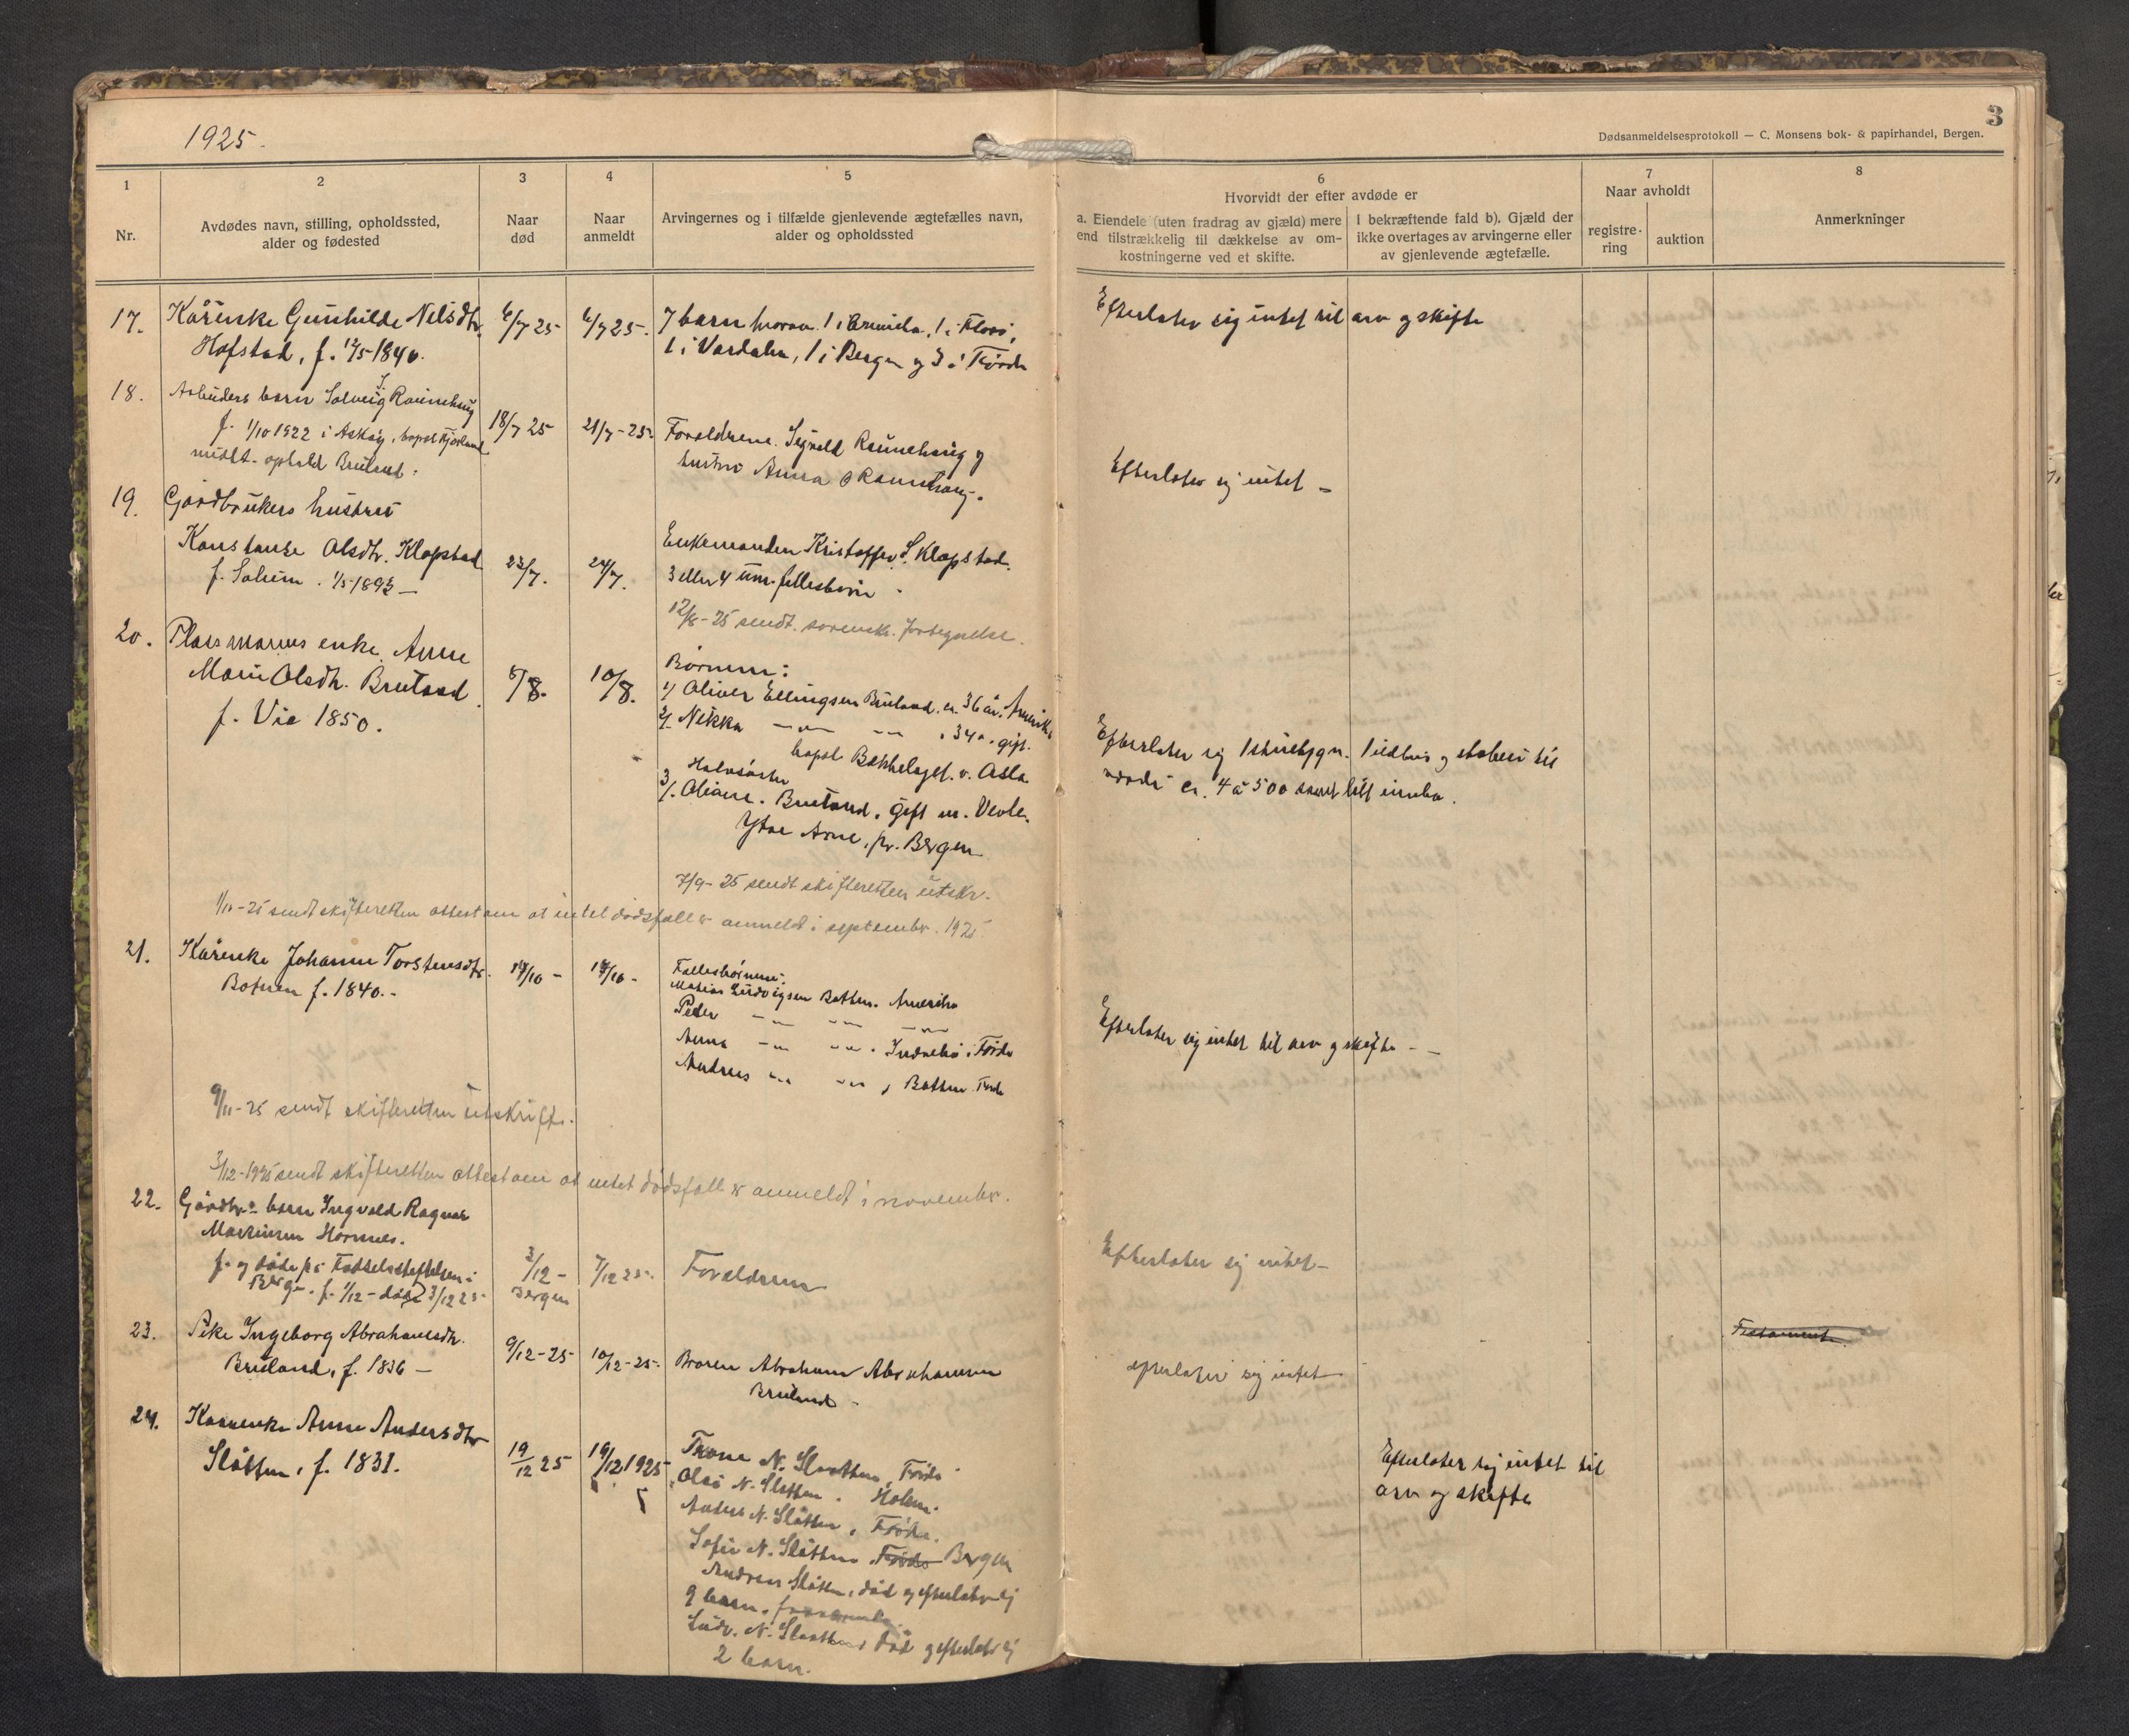 1925.
3
Dødsanmeldelsesprotokoll — C. Monsens bok- & papirhandel, Bergen.
1
Nr.
2
Avdødes navn, stilling, opholdssted,
alder og fødested
3
Naar
død
4
Naar
anmeldt
5
Arvingernes og i tilfælde gjenlevende ægtefælles navn,
alder og opholdssted
6
Hvorvidt der efter avdøde er
a. Eiendele (uten fradrag av gjæld) mere
end tilstrækkelig til dækkelse av om-
kostningerne ved et skifte.
I bekræftende fald b). Gjæld der
ikke overtages av arvingerne eller
av gjenlevende ægtefælle.
7
Naar avholdt
registre-
ring
auktion
8
Anmerkninger
17.
Kårenke Gunhilde Nelsdtr.
Hofstad, f. 12/5-1840.
6/7 25
6/7 25.
7 barn hvorav 1 i Amerika, 1 i Florø,
1 i Vardalen, 1 i Bergen og 3 i Førde
Efterlater sig intet til arv og skifte
18.
Arbeiders barn Solveig Raunehaug
f. 1/10 1922 i Askøy, bopel Fjærland
midlt. ophold Bruland.
18/7 25
21/7-25.
Foreldrene Sigvald Raunehaug og
hustru Anna Raunehaug.
Efterlater sig intet –
19.
Gårdbrukers hustru
Konstanse Olsdtr. Klopstad
f. Solheim. 1/5-1893 –
23/7.
24/7.
Enkemanden Kristoffer S. Klopstad.
3 eller 4 um. fellesbørn.
12/8-25 sendt sorensk. fortegnelse.
20.
Plassmanns enke Anne
Marie Olsdtr. Bruland
f. Vie 1850.
5/8.
10/8.
Børnene:
1/ Oliver Ellingsen Bruland. ca. 36 år. Amerika
2/ Nikka –"– –"– . 34 . gift.
bopel Bekkelaget. v. Oslo
Halvsøster
3/. Oliane. Bruland, gift m. Vevle.
Ytre Arne, pr. Bergen
Efterlater sig 1 stuebygn. 1 ildhus og stabur til
værdi ca. 4 à 500 samt litt innbo.
7/9-25 sendt skifteretten utskr.
1/10-25 sendt skifteretten attest om at intet dødsfall er anmeldt i september. 1925.
21.
Kårenke Johanne Torstensdtr.
Botnen f. 1840.-
17/10 –
17/10 –
Fellesbørnene:
Matias Ludvigsen Botnen. Amerika
Peder –"– –"– –"–
Anna –"– –"– . Indrebø. Førde
Andreas –"– –"– , Botnen Førde
Efterlater sig intet til arv og skifte –
9/11-25 sendt skifteretten utskrift.
3/12-1925 sendt skifteretten attest om at intet dødsfall er anmeldt i november.
22.
Gårdbr.s barn Ingvald Ragnar
Martinsen Hornnes.
f. og døde på Fødselsstiftelsen i
Bergen. f. 1/12 – død 3/12 25
3/12 –
Bergen
7/12 25.
Foreldrene
Efterlater sig intet –
23.
Pike Ingeborg Abrahamsdtr.
Bruland, f. 1836 –
9/12-25
10/12-25.
Broren Abraham Abrahamsen
Bruland –
efterlater sig intet
Testament
24.
Kårenke Anne Andersdtr
Slåtten, f. 1831.
19/12 25
19/12 1925
N. Slaatten, Førde
N. Slåtten. Holsen.
Anders N. Slåtten, Førde.
Sofie N. Slåtten Førde Bergen
Andreas Slåtten, død og efterlater sig
9 barn.
Ludv. N. Slaatten død og efterlater sig
2 barn.
Efterlater sig intet til
arv og skifte